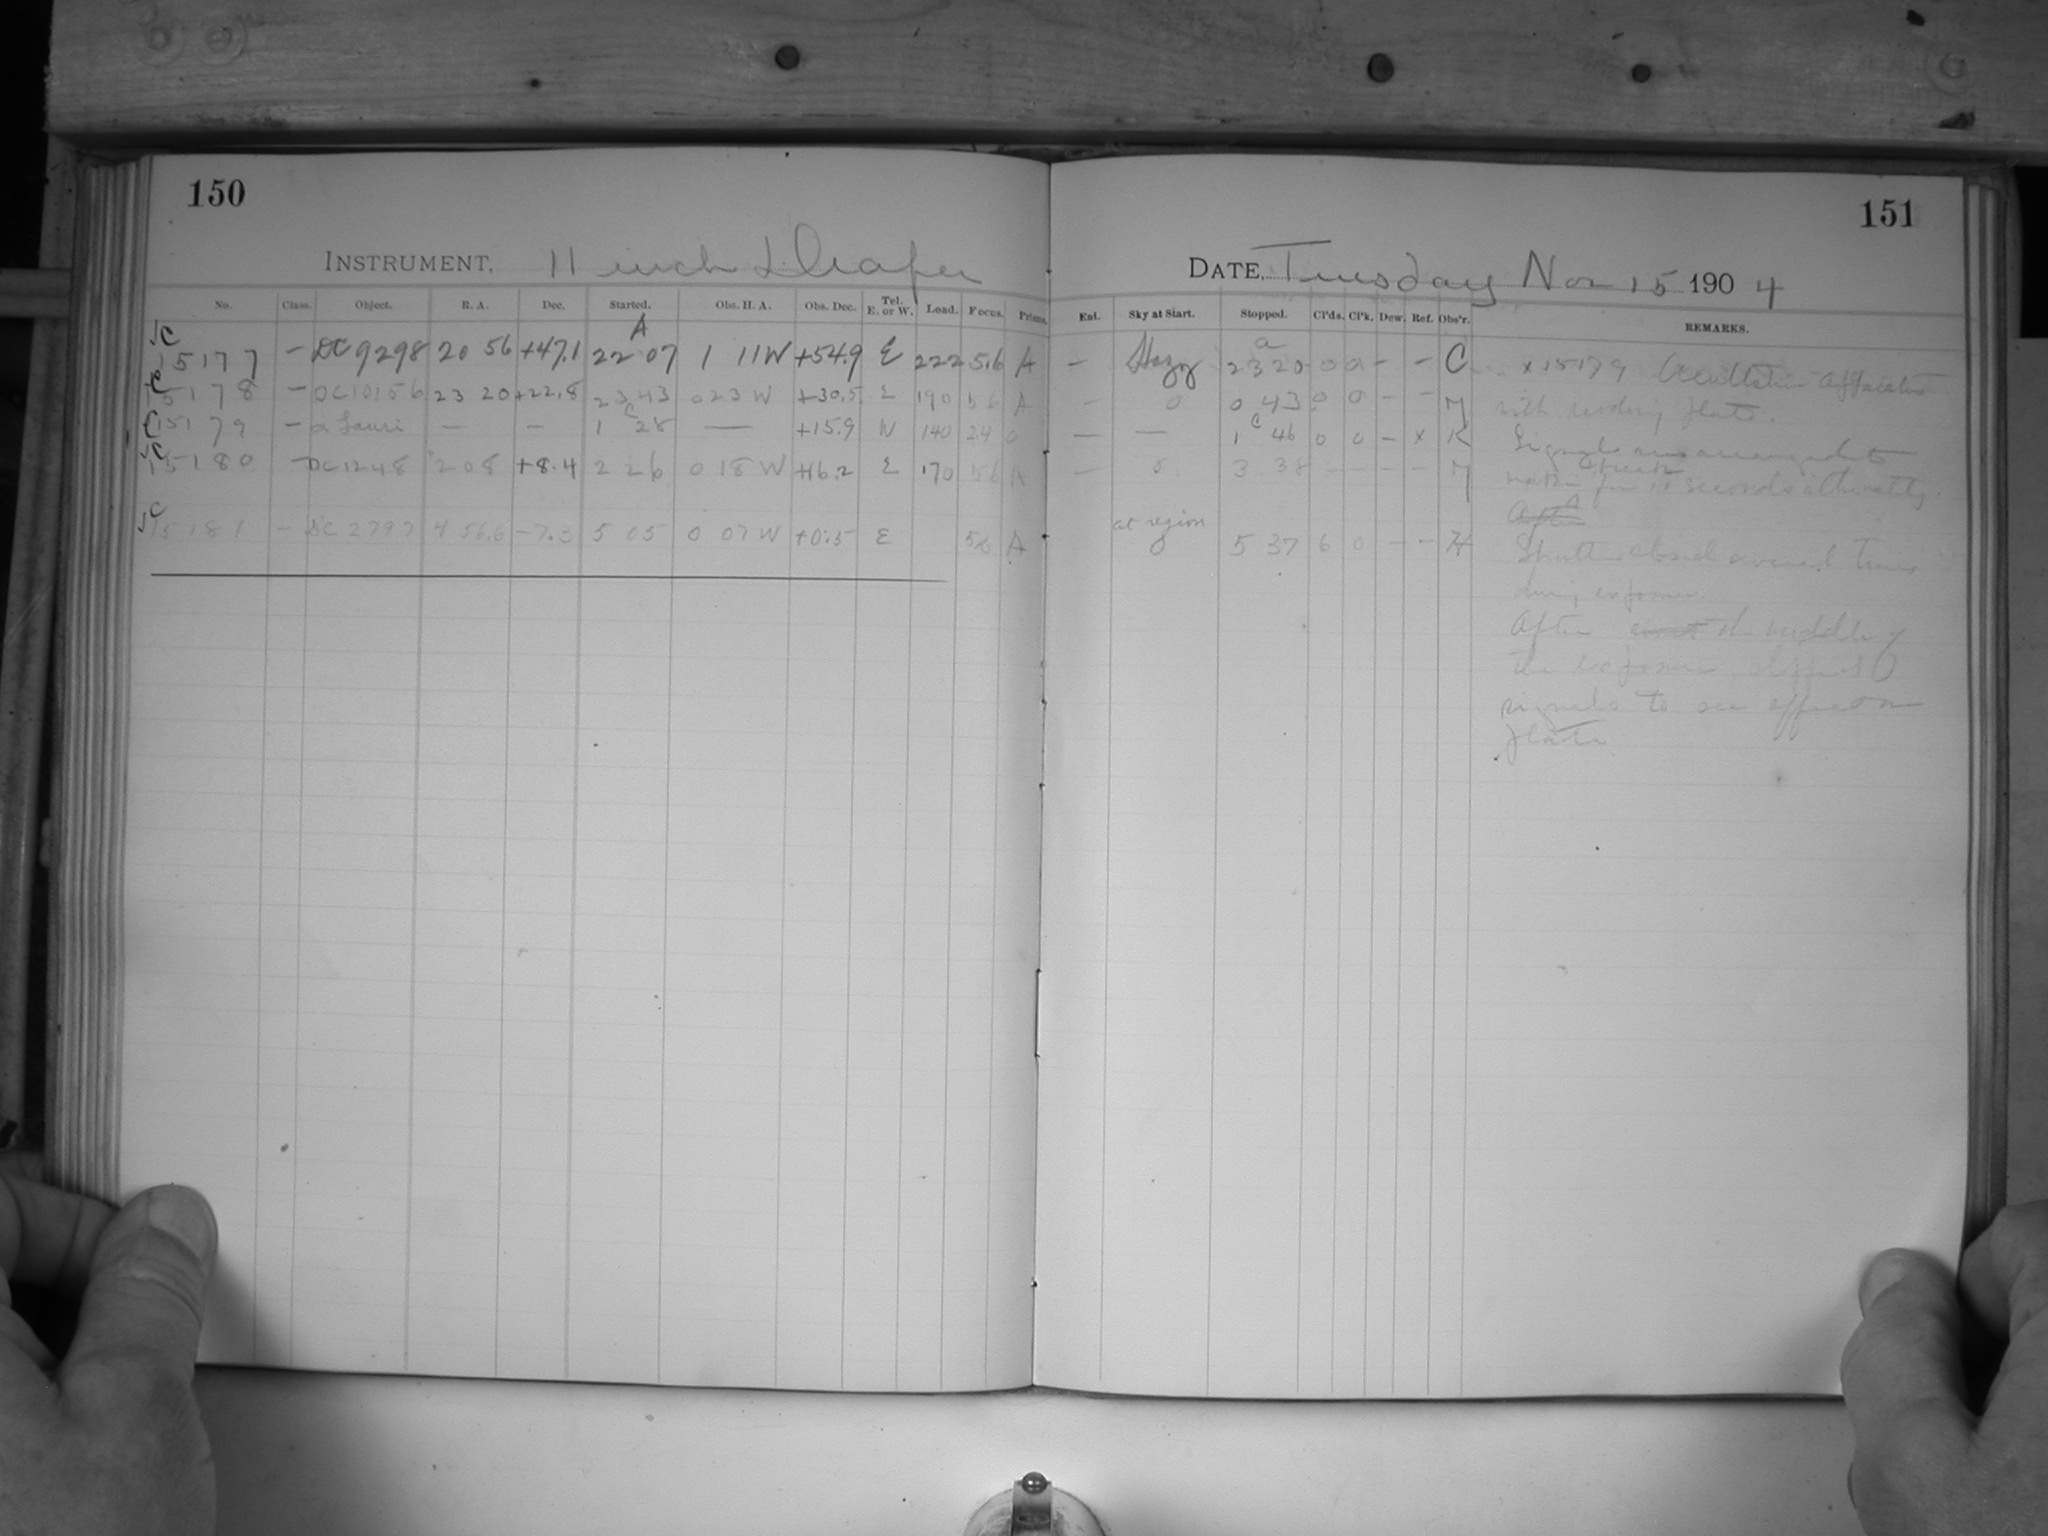 150
INSTRUMENT. 11 inch Draper
No. Class. Object. R. A. Dec. Started. Obs. H. A. Obs. Dec. Tel. E. or W. Load. Focus. Prisms.
JC A
15177 – DC 9298 20 56 +47.1 22 07 1 11 W +54.9 E 222 5.6 A
15178 – DC 10156 23 20 +22.8 23 43 0 23 W +30.5 E 190 56 A
C
15179 – α Tauri – – 1 28 — +15.9 W 140 24 0
15180 – DC 1248 2 08 +8.4 2 26 0 18 W +16.2 E 170 56 A
JC
15181 – DC 2797 4 56.6 -7.3 5 05 0 07 W +0.5 E 56 A
151
DATE, Tuesday Nov 15 1904
Ent. Sky at Start. Stopped. Cl'ds. Cl'k. Dew. Ref. Obs'r. REMARKS.
a
– Hazy 23 20 0 0 – – C x 15179 Occultation apparatus
– 0 0 43 0 0 – – M with moving plate.
C
— — 1 46 0 0 – x K Signals arranged to
– 0 3 38 – – – – M make break for 10 seconds alternately.
After
at region
0 5 37 6 0 – – H Shutter closed several times
during exposure.
After the middle of
the exposure
signals to see effect on
plate.